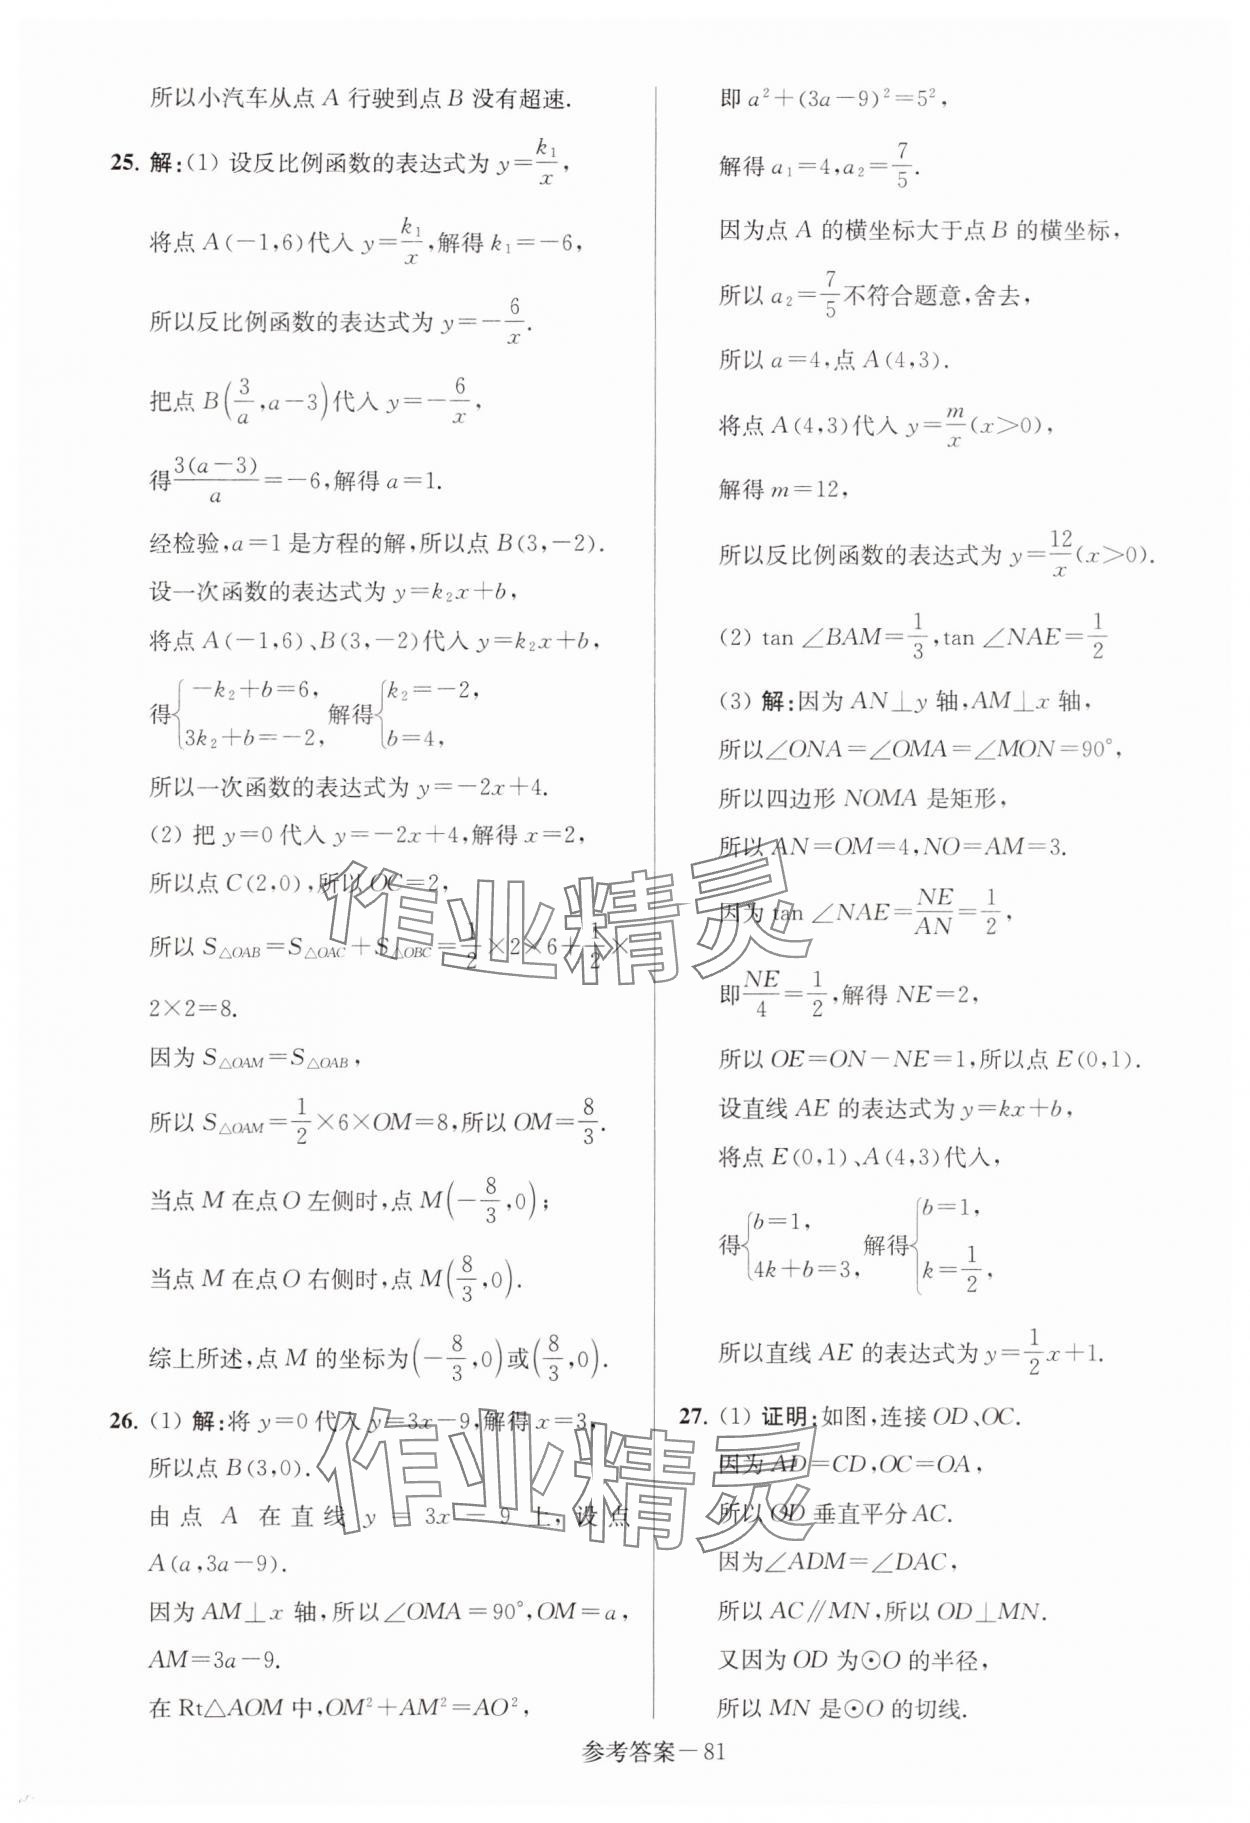 所以小汽车从点 A 行驶到点 B 没有超速.
25. 解:(1) 设反比例函数的表达式为 y=k₁/x,
将点 A(-1,6)代入 y=k₁/x,解得 k₁=-6,
所以反比例函数的表达式为 y=-6/x.
把点 B(3/a,a-3)代入 y=-6/x,
得3(a-3)/a=-6,解得 a=1.
经检验,a=1 是方程的解,所以点 B(3,-2).
设一次函数的表达式为 y=k₂x+b,
将点 A(-1,6)、B(3,-2)代入 y=k₂x+b,
得{-k₂+b=6, 3k₂+b=-2, 解得{k₂=-2, b=4,
所以一次函数的表达式为 y=-2x+4.
(2) 把 y=0 代入 y=-2x+4,解得 x=2,
所以点 C(2,0),所以 OC=2,
所以 S△OAB=S△OAC+S△OBC=1/2×2×6+1/2×
2×2=8.
因为 S△OAM=S△OAB,
所以 S△OAM=1/2×6×OM=8,所以 OM=8/3.
当点 M 在点 O 左侧时,点 M(-8/3,0);
当点 M 在点 O 右侧时,点 M(8/3,0).
综上所述,点 M 的坐标为(-8/3,0)或(8/3,0).
26. (1) 解:将 y=0 代入 y=3x-9,解得 x=3,
所以点 B(3,0).
由点 A 在直线 y=3x-9 上,设点
A(a,3a-9).
因为 AM⊥x 轴,所以∠OMA=90°,OM=a,
AM=3a-9.
在 Rt△AOM 中,OM²+AM²=AO²,
即 a²+(3a-9)²=5²,
解得 a₁=4,a₂=7/5.
因为点 A 的横坐标大于点 B 的横坐标,
所以 a₂=7/5不符合题意,舍去,
所以 a=4,点 A(4,3).
将点 A(4,3)代入 y=m/x(x>0),
解得 m=12,
所以反比例函数的表达式为 y=12/x(x>0).
(2) tan ∠BAM=1/3,tan ∠NAE=1/2
(3) 解:因为 AN⊥y 轴,AM⊥x 轴,
所以∠ONA=∠OMA=∠MON=90°,
所以四边形 NOMA 是矩形,
所以 AN=OM=4,NO=AM=3.
因为 tan ∠NAE=NE/AN=1/2,
即NE/4=1/2,解得 NE=2,
所以 OE=ON-NE=1,所以点 E(0,1).
设直线 AE 的表达式为 y=kx+b,
将点 E(0,1)、A(4,3)代入,
得{b=1, 4k+b=3, 解得{b=1, k=1/2,
所以直线 AE 的表达式为 y=1/2x+1.
27. (1) 证明:如图,连接 OD、OC.
因为 AD=CD,OC=OA,
所以 OD 垂直平分 AC.
因为∠ADM=∠DAC,
所以 AC∥MN,所以 OD⊥MN.
又因为 OD 为⊙O 的半径,
所以 MN 是⊙O 的切线.
参考答案-81
作业精灵
作业精灵